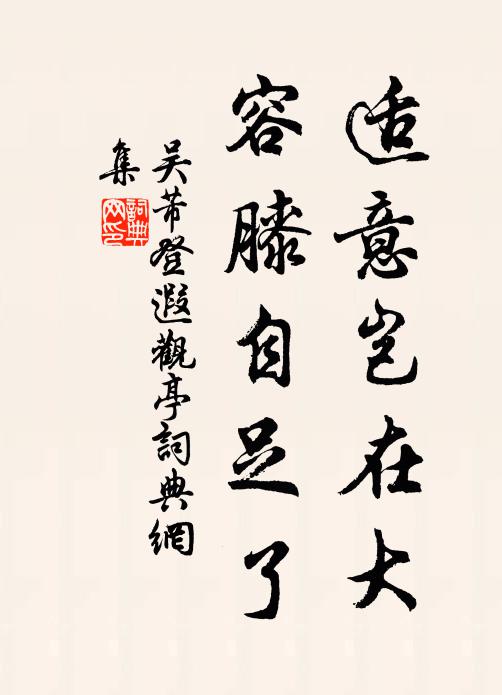 适意岂在大
容膝自足了
吴芾登遐觀亭詞典網
集
詞典网印